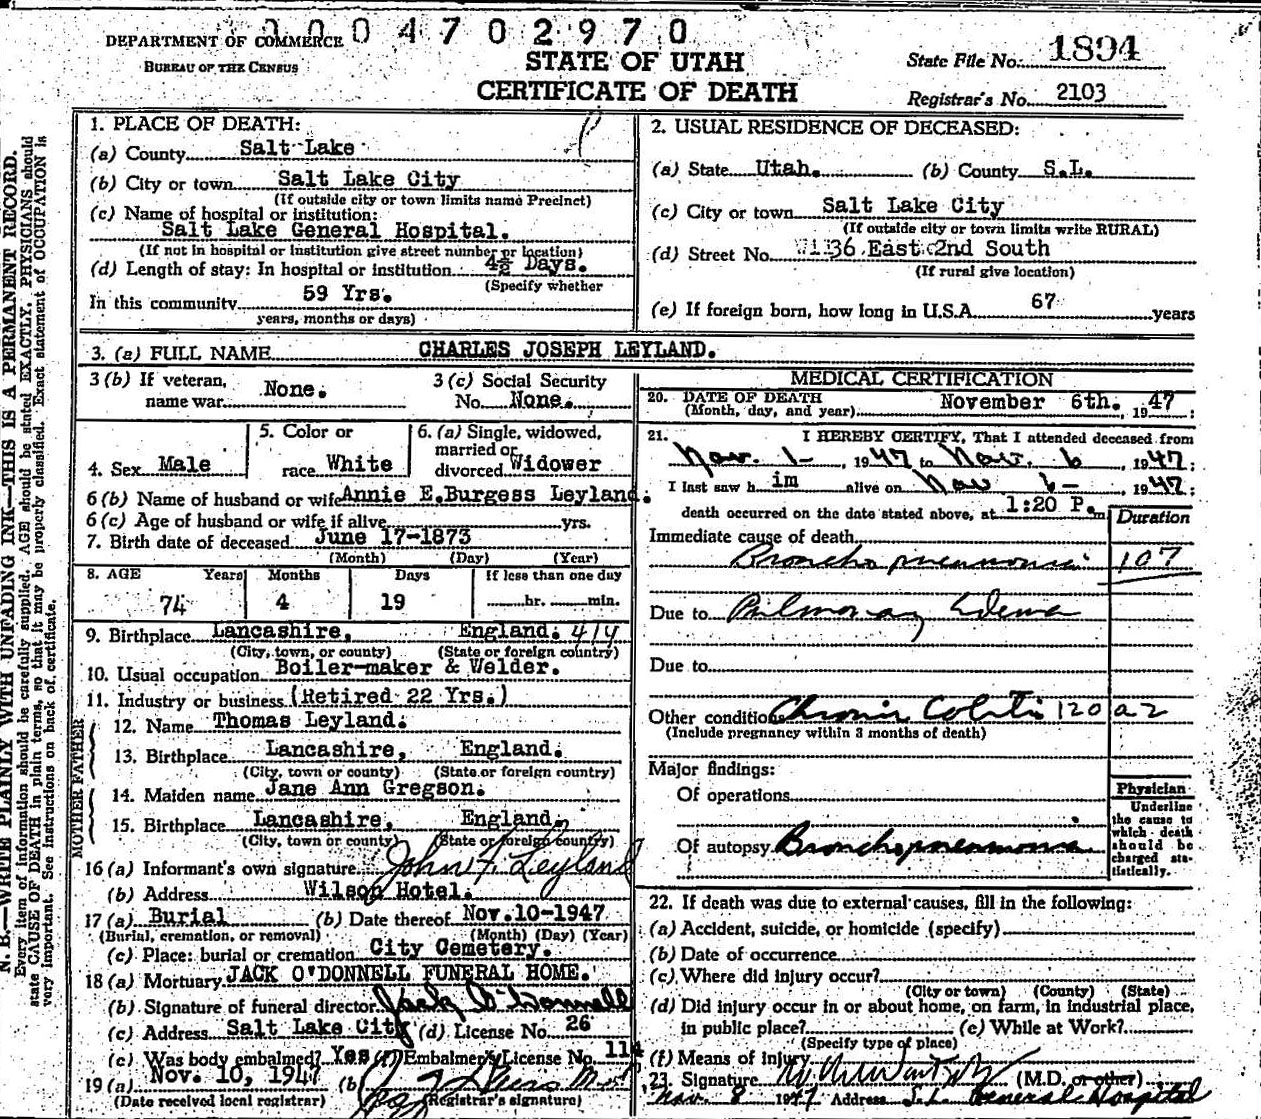 0 0 0 4 7 0 2 9 7 0
DEPARTMENT OF COMMERCE
BUREAU OF THE CENSUS
STATE OF UTAH
CERTIFICATE OF DEATH
State File No. 1894
Registrar's No. 2103
N. B.—WRITE PLAINLY WITH UNFADING INK—THIS IS A PERMANENT RECORD.
Every item of information should be carefully supplied. AGE should be stated EXACTLY. PHYSICIANS should
state CAUSE OF DEATH in plain terms, so that it may be properly classified. Exact statement of OCCUPATION is
very important. See instructions on back of certificate.
1. PLACE OF DEATH:
(a) County Salt Lake
(b) City or town Salt Lake City
(If outside city or town limits name Precinct)
(c) Name of hospital or institution:
Salt Lake General Hospital.
(If not in hospital or institution give street number or location)
(d) Length of stay: In hospital or institution 4½ Days.
(Specify whether
In this community 59 Yrs.
years, months or days)
2. USUAL RESIDENCE OF DECEASED:
(a) State Utah. (b) County S.L.
(c) City or town Salt Lake City
(If outside city or town limits write RURAL)
(d) Street No. 36 East 2nd South
(If rural give location)
(e) If foreign born, how long in U.S.A. 67 years
3. (a) FULL NAME CHARLES JOSEPH LEYLAND.
3 (b) If veteran, name war None.
3 (c) Social Security No. None.
4. Sex Male
5. Color or race White
6. (a) Single, widowed, married or divorced Widower
6 (b) Name of husband or wife Annie E.Burgess Leyland.
6 (c) Age of husband or wife if alive yrs.
7. Birth date of deceased June 17-1873
(Month) (Day) (Year)
8. AGE Years Months Days If less than one day
74 4 19 hr. min.
9. Birthplace Lancashire, England. 414
(City, town, or county) (State or foreign country)
10. Usual occupation Boiler-maker & Welder.
11. Industry or business (Retired 22 Yrs.)
FATHER
12. Name Thomas Leyland.
13. Birthplace Lancashire, England.
(City, town or county) (State or foreign country)
MOTHER
14. Maiden name Jane Ann Gregson.
15. Birthplace Lancashire, England.
(City, town or county) (State or foreign country)
16 (a) Informant's own signature John F. Leyland
(b) Address Wilson Hotel.
17 (a) Burial (b) Date thereof Nov.10-1947
(Burial, cremation, or removal) (Month) (Day) (Year)
(c) Place: burial or cremation City Cemetery.
18 (a) Mortuary JACK O'DONNELL FUNERAL HOME.
(b) Signature of funeral director Jack O'Donnell
(c) Address Salt Lake City (d) License No. 26
(e) Was body embalmed? Yes (f) Embalmer's License No. 114
19 (a) Nov. 10, 1947 (b)
(Date received local registrar) (Registrar's signature)
MEDICAL CERTIFICATION
20. DATE OF DEATH
(Month, day, and year) November 6th. , 1947 .
21. I HEREBY CERTIFY, That I attended deceased from
Nov. 1- , 1947 to Nov. 6 , 1947 ;
I last saw him alive on Nov 6- , 1947 ;
death occurred on the date stated above, at 1:20 P.m
Duration
Immediate cause of death
Bronchopneumonia 107
Due to Pulmonary Edema
Due to
Other conditions Chronic Colitis 120 a2
(Include pregnancy within 3 months of death)
Major findings:
Of operations
Of autopsy Bronchopneumonia
Physician
Underline
the cause to
which death
should be
charged sta-
tistically.
22. If death was due to external causes, fill in the following:
(a) Accident, suicide, or homicide (specify)
(b) Date of occurrence
(c) Where did injury occur?
(City or town) (County) (State)
(d) Did injury occur in or about home, on farm, in industrial place,
in public place? (e) While at Work?
(Specify type of place)
(f) Means of injury
23. Signature (M.D. or other)
Nov. 8 1947 Address S.L. General Hospital